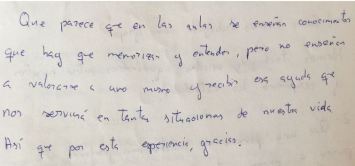 Que parece que en las aulas se enseñan conocimientos
que hay que memorizar y entender, pero no enseñan
a valorarse a uno mismo y recibir esa ayuda que
nos servirá en tanta situaciones de nuestra vida.
Así que por esta experiencia, gracias.